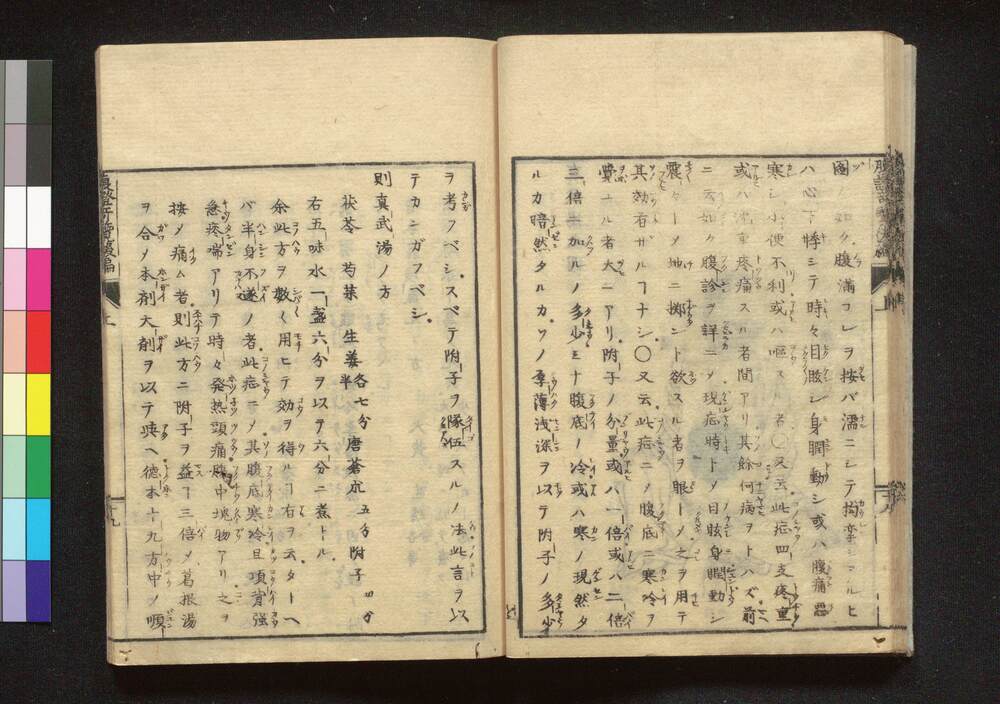 圖ノ如ク腹滿コレヲ按バ濡ニシテ拘攣シアルヒ
ハ心下悸シテ時々目眩シ身瞤動シ或ハ腹痛惡
寒シ小便不利或ハ嘔スル者〇又云此症四支疼重
或ハ沈重疼痛スル者間アリ其餘何病ヲトハズ前
ニ云如ク腹診ヲ詳ニノ現症時トノ目眩身瞤動シ
震々ーノ地ニ擲ント欲スル者ヲ眼ーノ之ヲ用テ
其効者ザルヿナシ〇又云此症ニノ腹底ニ寒冷ヲ
覺ユル者大ニアリ附子ノ分量或ハ一倍或ハ二倍
三倍加ルノ多少ミナ腹底ノ冷或ハ寒ノ現然タ
ルカ暗然タルカソノ厚薄浅深ヲ以テ附子ノ多少
ヲ考フベシスベテ附子ヲ隊伍スルノ法此言ヲ以
テカンガフベシ
則真武湯ノ方
茯苓 芍藥 生姜 各七分半 唐蒼朮 五分 附子 四分
右五味水一盞六分ヲ以テ六分ニ煮トル
余此方ヲ數〱用ヒテ効ヲ得ルヿ右ヲ云ターヘ
バ半身不遂ノ者此症ニノ其腹底寒冷且項背强
急疼喘アリテ時々発熱頭痛腹中塊物アリ之ヲ
按ノ痛ム者則此方ニ附子ヲ益ヿ三倍ノ葛根湯
ヲ合ノ本剤大剤ヲ以テ與ヘ德本十九方中ノ順